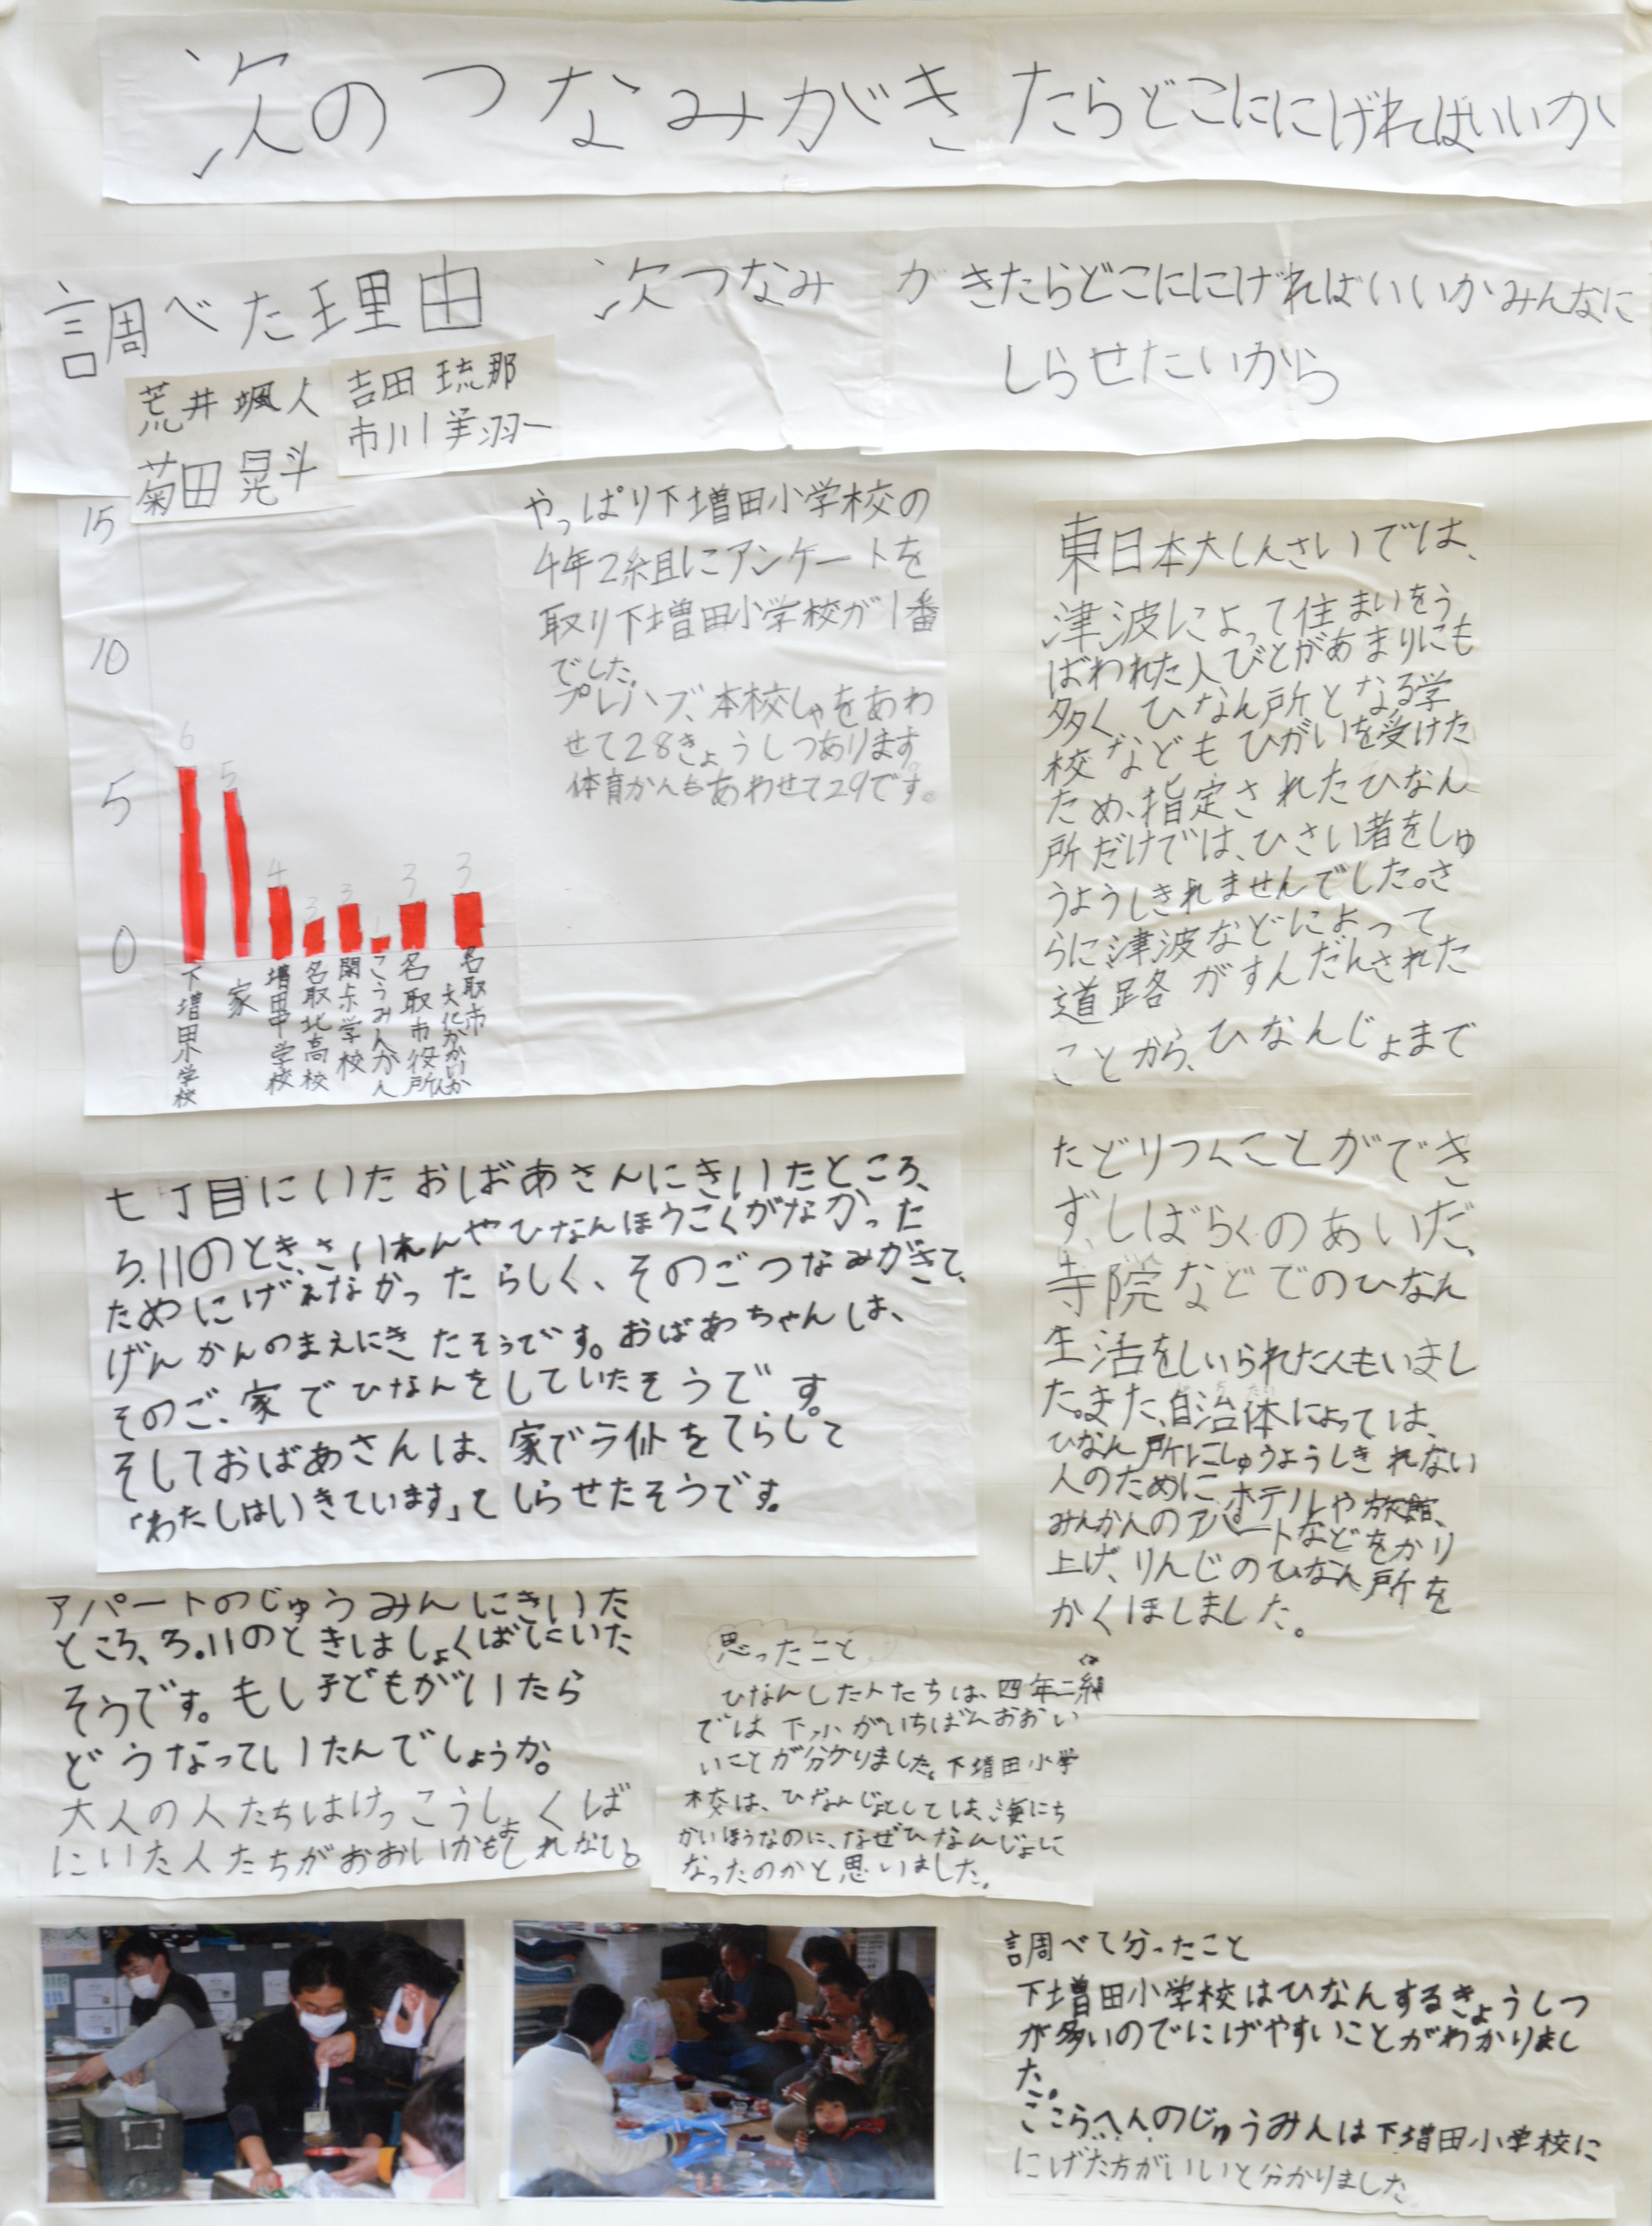 次のつなみがきたらどこににげればいいか
調べた理由
次つなみがきたらどこににげればいいかみんなに
しらせたいから
荒井颯人
菊田晃斗
吉田琉那
市川美羽
15
10
5
0
6
5
4
3
3
1
3
3
下増田小学校
家
増田中学校
名取北高校
閖上小学校
こうみんかん
名取市役所
名取市
文化かいかん
やっぱり下増田小学校の
4年2組にアンケートを
取り下増田小学校が1番
でした。
プレハブ、本校しゃをあわ
せて28きょうしつあります。
体育かんもあわせて29です。
東日本大しんさいでは、
津波によって住まいをう
ばわれた人びとがあまりにも
多く、ひなん所となる学
校などもひがいを受けた
ため、指定されたひなん
所だけでは、ひさい者をしゅ
うようしきれませんでした。さ
らに津波などによって
道路がすんだんされた
ことから、ひなんじょまで
たどりつくことができ
ず、しばらくのあいだ、
寺院などでのひなん
生活をしいられた人もいまし
た。また、自治体によっては、
ひなん所にしゅうようしきれない
人のために、ホテルや旅館、
みんかんのアパートなどをかり
上げ、りんじのひなん所を
かくほしました。
七丁目にいたおばあさんにきいたところ、
3.11のとき、さいれんやひなんほうこくがなかった
ためにげえなかったらしく、そのごつなみがきて、
げんかんのまえにきたそうです。おばあちゃんは、
そのご、家でひなんをしていたそうです。
そしておばあさんは、家でライトをてらして
「わたしはいきています」てしらせたそうです。
アパートのじゅうみんにきいた
ところ、3.11のときはしょくばにいた
そうです。もし子どもがいたら
どうなっていたんでしょうか。
大人の人たちはけっこうしょくば
にいた人たちがおおいかもしれない。
思ったこと
ひなんした人たちは、四年二組
では下小がいちばんおおい
いことが分かりました。下増田小学
校は、ひなんじょとしては、海にち
かいほうなのに、なぜひなんじょに
なったのかと思いました。
調べて分ったこと
下増田小学校はひなんするきょうしつ
が多いのでにげやすいことがわかりまし
た。
ここらへんのじゅうみんは下増田小学校に
にげた方がいいと分かりました